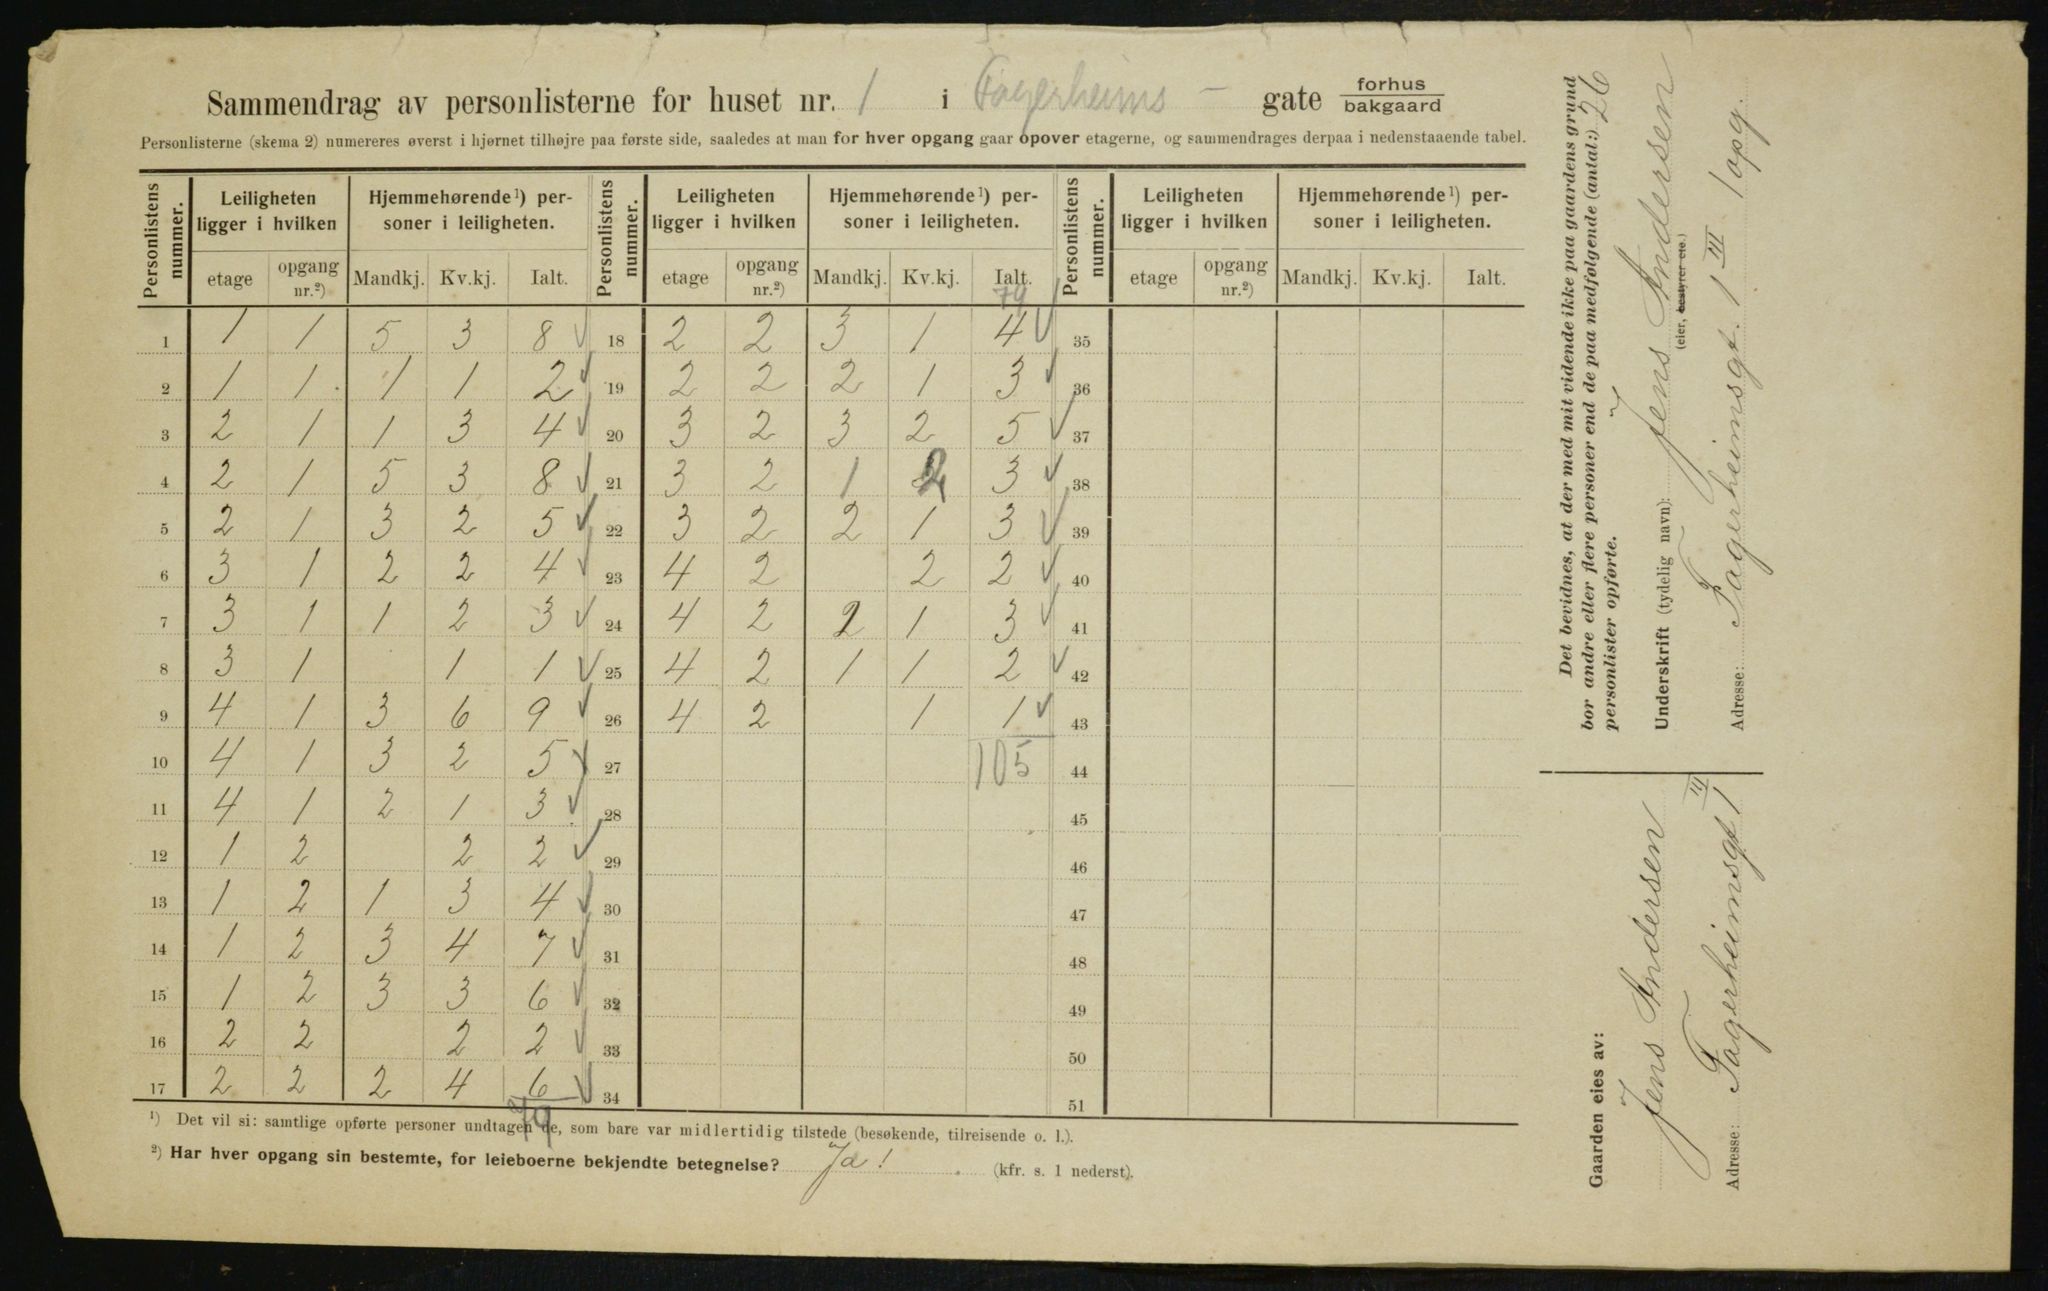 Sammendrag av personlisterne for huset nr. 1 i Fagerheims - gate forhus/bakgaard
Personlisterne (skema 2) numereres øverst i hjørnet tilhøjre paa første side, saaledes at man for hver opgang gaar opover etagerne, og sammendrages derpaa i nedenstaaende tabel.
Personlistens nummer. | Leiligheten ligger i hvilken | Hjemmehørende ¹) personer i leiligheten. | Personlistens nummer. | Leiligheten ligger i hvilken | Hjemmehørende ¹) personer i leiligheten. | Personlistens nummer. | Leiligheten ligger i hvilken | Hjemmehørende ¹) personer i leiligheten.
etage | opgang nr.²) | Mandkj. | Kv.kj. | Ialt. | etage | opgang nr.²) | Mandkj. | Kv.kj. | Ialt. | etage | opgang nr.²) | Mandkj. | Kv.kj. | Ialt.
79
1 | 1 | 1 | 5 | 3 | 8 ✓ | 18 | 2 | 2 | 3 | 1 | 4 ✓ | 35
2 | 1 | 1 | 1 | 1 | 2 ✓ | 19 | 2 | 2 | 2 | 1 | 3 ✓ | 36
3 | 2 | 1 | 1 | 3 | 4 ✓ | 20 | 3 | 2 | 3 | 2 | 5 ✓ | 37
4 | 2 | 1 | 5 | 3 | 8 ✓ | 21 | 3 | 2 | 1 | 2 | 3 ✓ | 38
5 | 2 | 1 | 3 | 2 | 5 ✓ | 22 | 3 | 2 | 2 | 1 | 3 ✓ | 39
6 | 3 | 1 | 2 | 2 | 4 ✓ | 23 | 4 | 2 | | 2 | 2 ✓ | 40
7 | 3 | 1 | 1 | 2 | 3 ✓ | 24 | 4 | 2 | 2 | 1 | 3 ✓ | 41
8 | 3 | 1 | | 1 | 1 ✓ | 25 | 4 | 2 | 1 | 1 | 2 ✓ | 42
9 | 4 | 1 | 3 | 6 | 9 ✓ | 26 | 4 | 2 | | 1 | 1 ✓ | 43
10 | 4 | 1 | 3 | 2 | 5 ✓ | 27 | | | | | 105 | 44
11 | 4 | 1 | 2 | 1 | 3 ✓ | 28 | | | | | | 45
12 | 1 | 2 | | 2 | 2 ✓ | 29 | | | | | | 46
13 | 1 | 2 | 1 | 3 | 4 ✓ | 30 | | | | | | 47
14 | 1 | 2 | 3 | 4 | 7 ✓ | 31 | | | | | | 48
15 | 1 | 2 | 3 | 3 | 6 ✓ | 32 | | | | | | 49
16 | 2 | 2 | | 2 | 2 ✓ | 33 | | | | | | 50
17 | 2 | 2 | 2 | 4 | 6 ✓ | 34 | | | | | | 51
79
¹) Det vil si: samtlige opførte personer undtagen de, som bare var midlertidig tilstede (besøkende, tilreisende o. l.).
²) Har hver opgang sin bestemte, for leieboerne bekjendte betegnelse? Ja! (kfr. s. 1 nederst).
Det bevidnes, at der med mit vidende ikke paa gaardens grund
bor andre eller flere personer end de paa medfølgende (antal:) 26
personlister opførte.
Underskrift (tydelig navn): Jens Andersen
(eier, bestyrer etc.)
Adresse: Fagerheimsgt. 1 III 1 opg.
Gaarden eies av:
Jens Andersen
Adresse: Fagerheimsgt 1 III